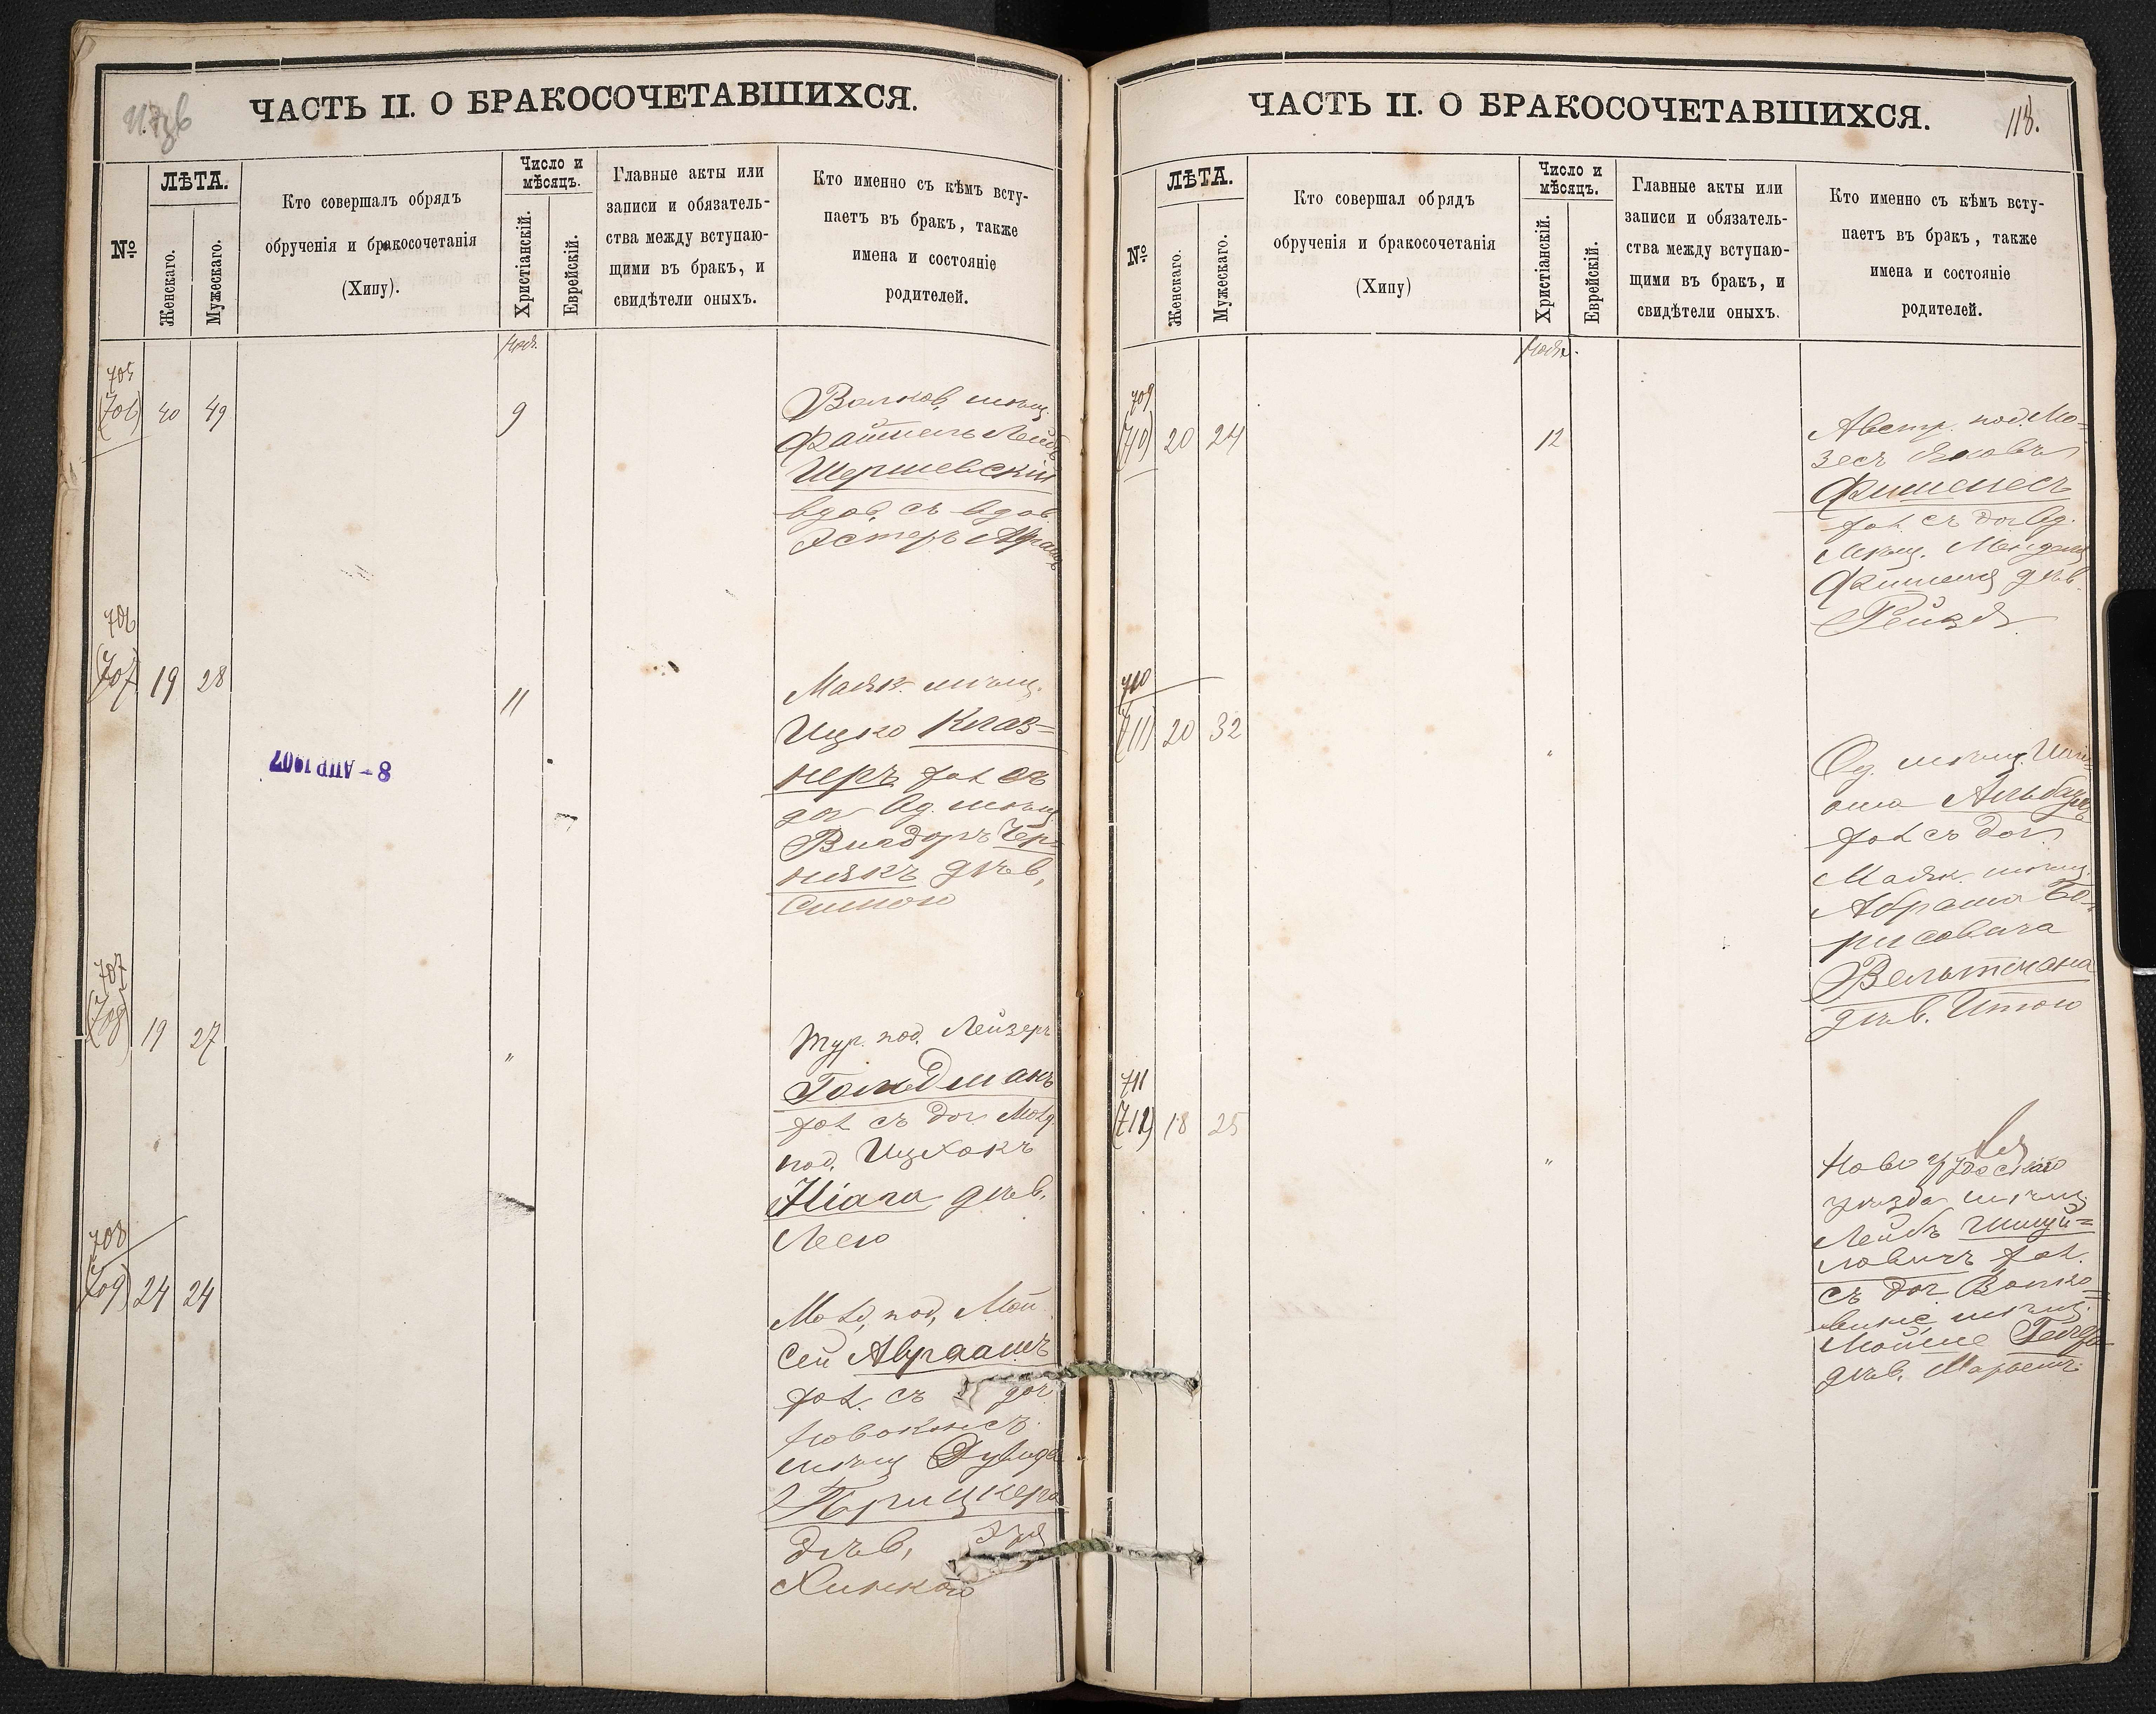 Изв
ЧАСТЬ II. О БРАКОСОЧЕТАВШИХСЯ.
№
ЛѢТА.
Женскаго.
Мужескаго.
Кто совершалъ обрядъ
обрученія и бракосочетанія
(Хипу).
Число и
мѣсяцъ.
Христіанскій.
Еврейскій.
Главные акты или
записи и обязатель-
ства между вступаю-
щими въ бракъ, и
свидѣтели оныхъ.
Кто именно съ кѣмъ всту-
паетъ въ бракъ, также
имена и состояніе
родителей.
Нояб.
705
(706) 40 49 9
Волков. мѣщ.
Файтель Лейбъ
Шершевскій
вдов. съ вдов.
Эстеръ
706
(707) 19 28 11
Маяк. мѣщ.
Ицко Клаз-
неръ хол съ
доч Од. мѣщ
Вигдоръ Чер-
някъ дѣв,
Симою
8 - АПР 1907
707
(708) 19 27 "
Тур. под. Лейзеръ
Гольдманъ
хол съ доч. Молд.
под. Ицхокъ
дѣв.
Леею
708
(709) 24 24
Молд. под, Мои
сей Авраамъ
хол. съ доч
мѣщ Дувида
Прицкера
дѣв,
Хинкою
ЧАСТЬ II. О БРАКОСОЧЕТАВШИХСЯ.
118.
№
ЛѢТА.
Женскаго.
Мужескаго.
Кто совершал обрядъ
обрученія и бракосочетанія
(Хипу)
Число и
мѣсяцъ.
Христіанскій.
Еврейскій.
Главные акты или
записи и обязатель-
ства между вступаю-
щими въ бракъ, и
свидѣтели оныхъ.
Кто именно съ кѣмъ всту-
паетъ въ бракъ, также
имена и состояніе
родителей.
Нояб.
709
(710) 20 24 12
Австр. под. Мо-
зесъ Яковъ
Фишелесъ
хол съ доч Од.
мѣщ. Менделя
дѣв.
Рейзя
710
(711) 20 32 "
Од. мѣщ.
хол съ доч
Маяк. мѣщ.
Абрама Бо-
рисовича
Вельтмана
дѣв. Итою
711
(712) 18 25 "
уѣзда мѣщ
Лейбъ Шмуй-
ловичъ хол.
съ доч Волко-
мѣщ.
Мойше
дѣв.